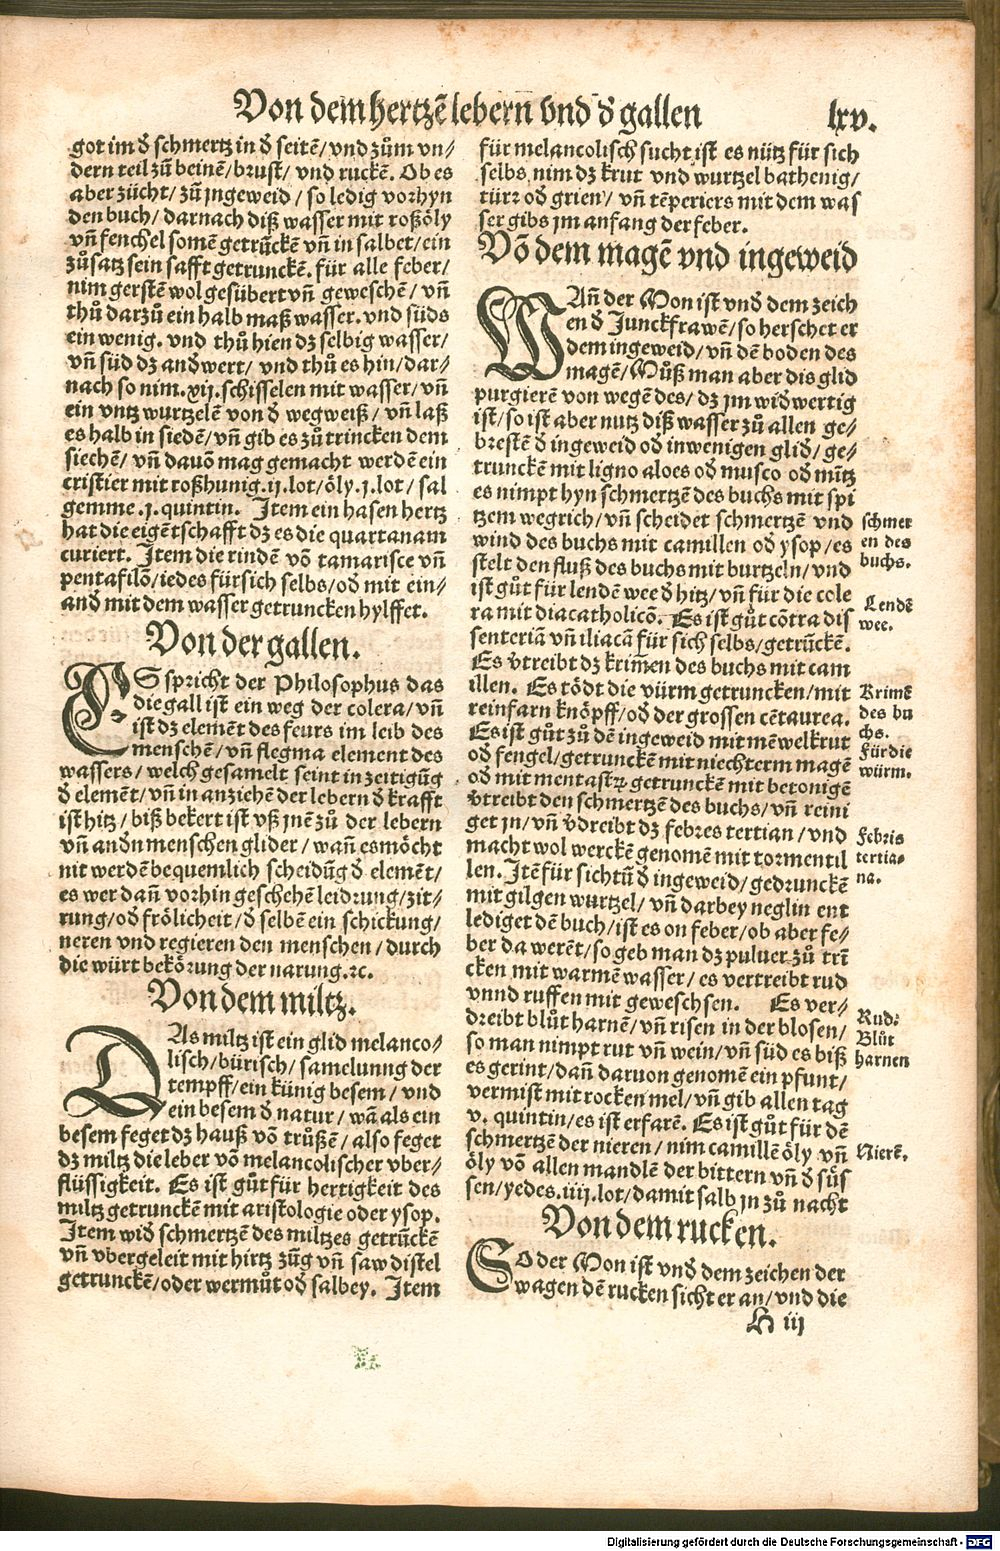 Von dem hertzē lebern vnd đ gallen
lxv.
got im đ schmertz in đ seitē/vnd zům vn⸗
dern teil zů beinē/brust/ vnd ruckē. Ob es
aber zücht/ zů jngeweid / so ledig vorhyn
den buch/ darnach diß wasser mit roßöly
vñ fenchel somē getrūckē vñ in salbet/ein
zůsatz sein safft getrunckē. für alle feber/
nim gerstē wol gesübert vñ geweschē/ vñ
thů darzů ein halb maß wasser. vnd süds
ein wenig. vnd thů hien dz selbig wasser/
vñ süd dz andwert/ vnd thů es hin/dar⸗
nach so nim .xij. schisselen mit wasser/ vñ
ein vntz wurtzelē von đ wegweiß/ vñ laß
es halb in siedē/vñ gib es zů trincken dem
siechē/ vñ dauō mag gemacht werdē ein
cristier mit roßhunig .ij. lot/öly .j. lot/ sal
gemme .j. quintin. Item ein hasen hertz
hat die eigētschafft dz es die quartanam
curiert. Item die rindē vō tamarisce vñ
pentafilō/iedes fürsich selbs/ođ mit ein⸗
anđ mit dem wasser getruncken hylffet.
Von der gallen.
ES spricht der Philosophus das
die gall ist ein weg der colera/ vñ
ist dz elemēt des feurs im leib des
menschē/ vñ flegma element des
wassers/ welch gesamelt seint in zeitigūg
đ elemēt/ vñ in anziehē der lebern đ krafft
ist hitz/ biß bekert ist vß jnē zů der lebern
vñ anđn menschen glider/ wañ es möcht
nit werdē bequemlich scheidūg đ elemēt/
es wer dañ vorhin geschehē leidrung/zit⸗
rung/ođ frölicheit/ đ selbē ein schickung/
neren vnd regieren den menschen/ durch
die würt bekörung der narung.ꝛc.
Von dem miltz.
DAs miltz ist ein glid melanco⸗
lisch/bürisch/ samelunng der
tempff/ein künig besem/ vnd
ein besem đ natur/ wā als ein
besem feget dz hauß vō trůßē/ also feget
dz miltz die leber vō melancolischer vber⸗
flüssigkeit. Es ist gůt für hertigkeit des
miltz getrunckē mit aristologie oder ysop.
Item wiđ schmertzē des miltzes getrūckē
vñ vbergeleit mit hirtz zūg vñ saw distel
getrunckē/oder wermůt ođ salbey. Item
für melancolisch sucht ist es nütz für sich
selbs. nim dz krut vnd wurtzel bathenig/
türꝛ ođ grien/ vñ tēperiers mit dem was
ser gibs jm anfang der feber.
Vō dem magē vnd ingeweid
WAñ der Mon ist vnđ dem zeich
en đ Junckfrawē/ so herschet er
dem ingeweid/ vñ dē boden des
magē/ Můß man aber dis glid
purgierē von wegē des/ dz jm widwertig
ist/ so ist aber nutz diß wasser zů allen ge⸗
brestē đ ingeweid ođ inwenigen gliđ/ ge⸗
trunckē mit ligno aloes ođ musco ođ mūtz
es nimpt hyn schmertzē des buchs mit spi
tzem wegrich/ vñ scheidet schmertzē vnd
wind des buchs mit camillen ođ ysop/ es
stelt den fluß des buchs mit burtzeln/ vnd
ist gůt für lendē wee đ hitz/ vñ für die cole
ra mit diacatholicō. Es ist gůt cōtra dis
senteriā vñ iliacā für sich selbs/getrūckē.
Es v̄treibt dz krim̄en des buchs mit cam
illen. Es tödt die würm getruncken/mit
reinfarn knöpff/ođ der grossen cētaurea.
Es ist gůt zů dē ingeweid mit mēwelkrut
ođ fengel/getrunckē mit niechterm magē
ođ mit mentastꝝ getrunckē mit betonigē
v̄treibt den schmertzē des buchs/ vñ reini
get jn/ vñ v̄dreibt dz febres tertian/ vnd
macht wol werckē genomē mit tormentil
len. Itē für sichtū đ ingeweid/ gedrunckē
mit gilgen wurtzel/ vñ darbey neglin ent
lediget dē buch/ ist es on feber/ ob aber fe⸗
ber da werēt/ so geb man dz puluer zů trī
cken mit warmē wasser/ es vertreibt rud
vnnd ruffen mit geweschsen. Es ver⸗
dreibt blůt harnē/ vñ risen in der blosen/
so man nimpt rut vñ wein/ vñ süd es biß
es gerint/ dañ daruon genomē ein pfunt/
vermist mit rocken mel/ vñ gib allen tag
v. quintin/ es ist erfarē. Es ist gůt für dē
schmertzē der nieren/ nim camillē öly vñ
öly vō allen mandlē der bittern vñ đ süs
sen/yedes .iiij. lot/ damit salb jn zů nacht
Von dem rucken.
SO der Mon ist vnđ dem zeichen der
wagen dē rucken sicht er an/ vnd die
H iii
schmer
en des
buchs.
Lendē
wee.
Krimē
des bu
chs.
Für die
würm.
Febris
tertia⸗
na.
Rud.
Blůt
harnen
Nierē.
Digitalisierung gefördert durch die Deutsche Forschungsgemeinschaft - DFG